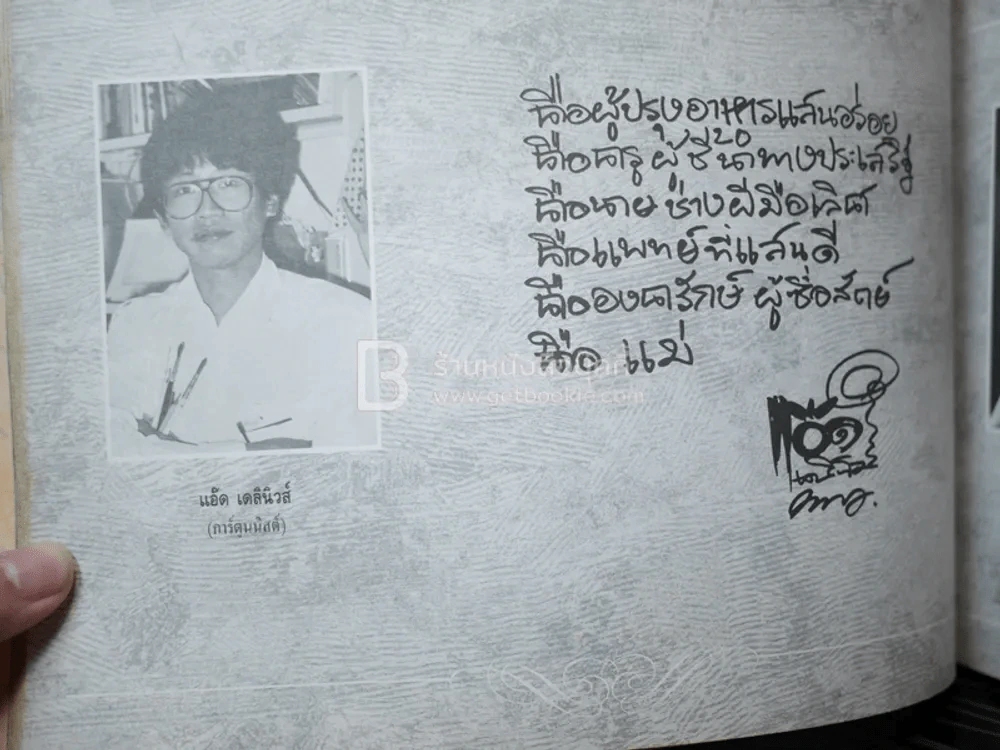 คือผู้ปรุงอาหารแสนอร่อย
คือครู ผู้ชี้นำทางประเสริฐ
คือนายช่างฝีมือเลิศ
คือแพทย์ที่แสนดี
คือองครักษ์ ผู้ซื่อสัตย์
คือ แม่
แอ๊ด เดลินิวส์
(การ์ตูนนิสต์)
B
www.gotbookie.com